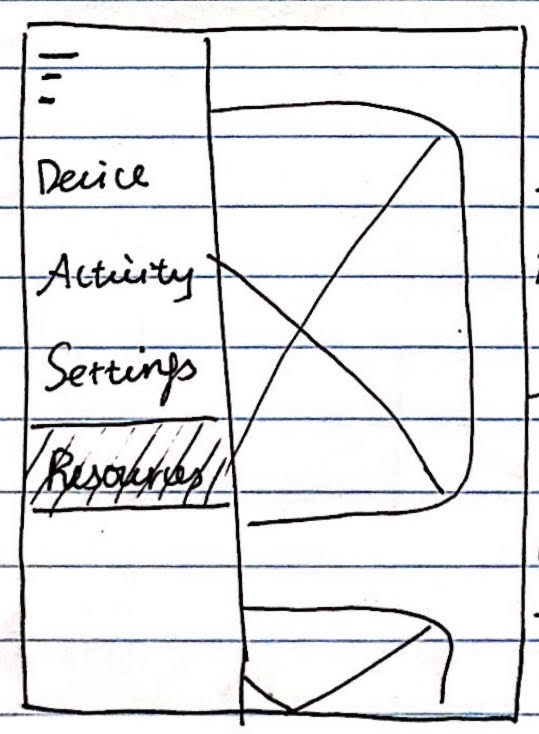 Device
Activity
Settings
Resources